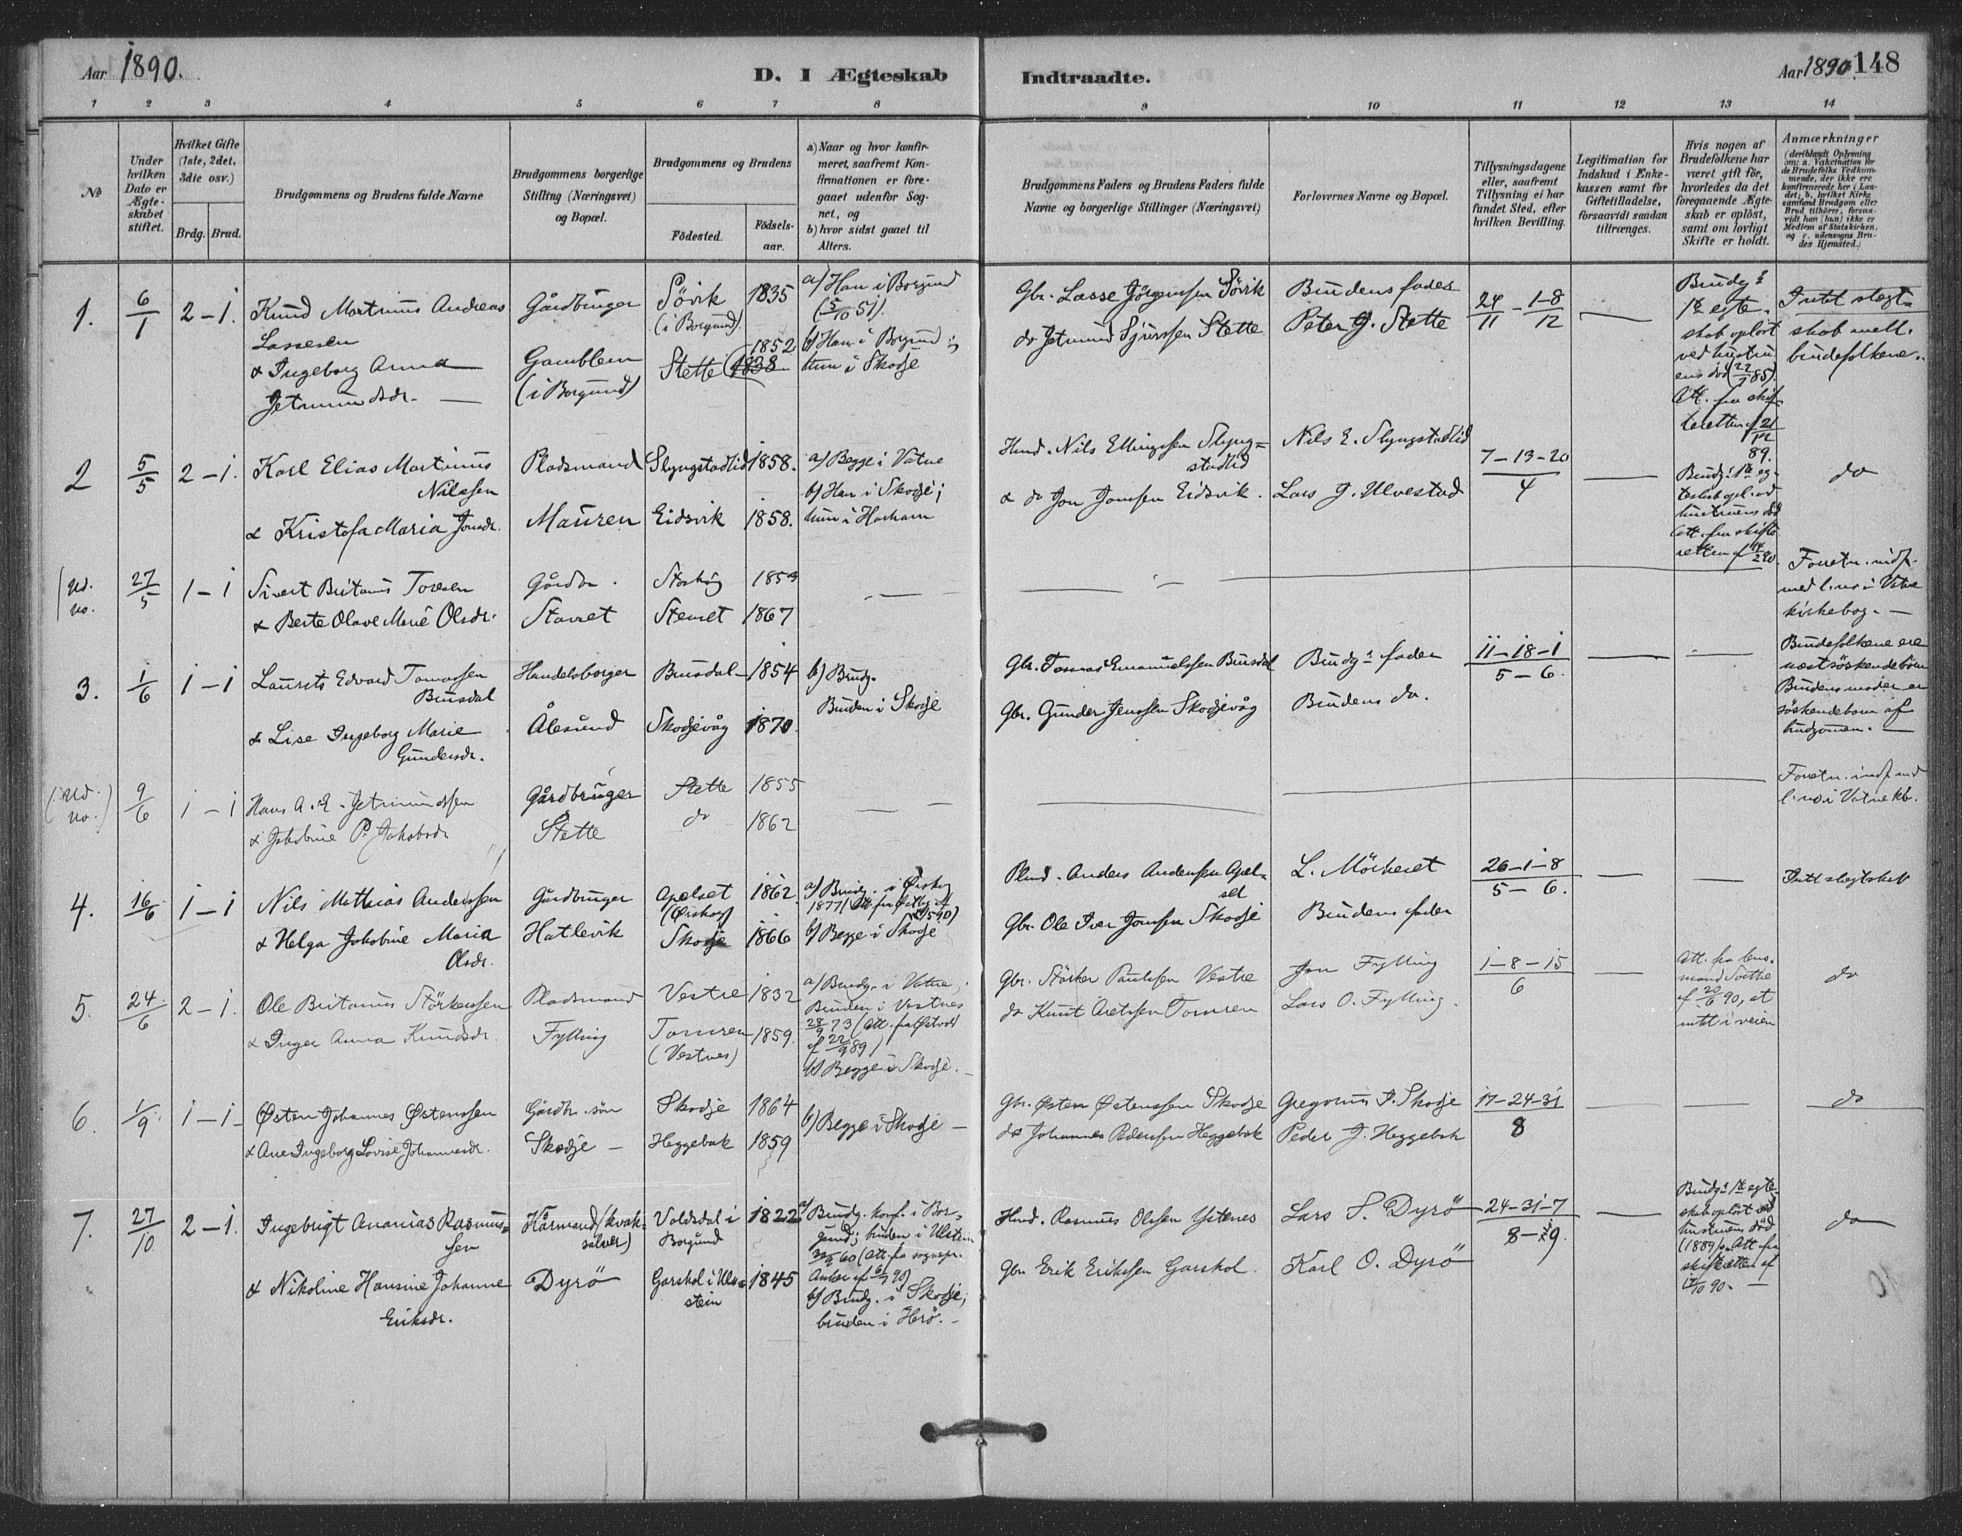 Aar 1890.
D. I Ægteskab Indtraadte.
Aar 1890. 148
1 2 3 4 5 6 7 8 9 10 11 12 13 14
No
Under hvilken Dato er Ægteskabet stiftet.
Hvilket Gifte (1ste, 2det, 3die osv.)
Brdg. Brud.
Brudgommens og Brudens fulde Navne
Brudgommens borgerlige Stilling (Næringsvei) og Bopæl.
Brudgommens og Brudens
Fødested.
Fødselsaar.
a) Naar og hvor konfirmeret, saafremt Konfirmationen er foregaaet udenfor Sognet, og
b) hvor sidst gaaet til Alters.
Brudgommens Faders og Brudens Faders fulde Navne og borgerlige Stillinger (Næringsvei)
Forlovernes Navne og Bopæl.
Tillysningsdagene eller, saafremt Tillysning ei har fundet Sted, efter hvilken Bevilling.
Legitimation for Indskud i Enkekassen samt for Giftetilladelse, forsaavidt saadan tiltrænges.
Hvis nogen af Brudefolkene har været gift før, hvorledes da det foregaaende Ægteskab er opløst, samt om lovligt Skifte er holdt.
Anmærkninger
(deriblandt Oplysning om: a. Vakcination for de Brudefolks Vedkommende, der ikke ere konfirmerede her i Landet; b. hvilket Kirkesamfund Brudgom eller Brud tilhører, forsaavidt han (hun) ikke er Medlem af Statskirken, og c. udensogns Brudes Hjemsted.)
1. 6/1 2 – 1. Knud Martinus Andreas
Lassesen
& Ingeborg Anna
Jetmundsdr. —
Gårdbruger
Gamblem
(i Borgund)
Søvik 1835
(i Borgund).
1852
Stette (1838
a/ Han i Borgund
(5/10 51).
b/ Han i Borgund;
hun i Skodje
Gbr. Lasse Jørgensen Søvik
do Jetmund Sjurssen Stette
Brudens fader
Peter J. Stette
24 – 1-8
11 12
—
Brudg s
1ste egte-
skab opløst
ved hustru-
ens død (22/7 85).
Att. fra skif-
teretten af 21/12
89.
Intet slegt-
skab mell.
brudefolkene.
2 5/5 2 – 1. Karl Elias Martinus
Nilssen
& Kristofa Maria Jonsdr.
Pladsmand
Mauren
Slyngstadlid 1858.
Eidsvik 1858.
a/ Begge i Vatne
b/ Han i Skodje;
hun i Harham
Husd. Nils Ellingssen Slyng-
stadlid
& do Jon Jonssen Eidsvik.
Nils E. Slyngstadlid
Lars J. Ulvestad
7 – 13 – 20
4
—
Brudg s 1ste eg-
teskab opl. ved
hustruens død
Att. fra skifte-
retten af 14/2 90.
do
(ud. no. 27/5 1 – 1 Sivert Britanus Tovesen
& Berte Olave Marie Olsdr.
Gårdbr.
Storhøg 1859
Stenset 1867
—
Foretn. indf.
med l. no i Vatne
kirkebog. —
3. 1/6 1 – 1 Laurits Edvard Tomassen
Brusdal
& Lise Ingeborg Marie
Gundersdr.
Handelsborger
Ålesund
Brusdal 1854
Skodjevåg 1870.
b/ Brudg.
Bruden i Skodje
Gbr. Tomas Emanuelssen Brusdal
Gbr. Gunder Jenssen Skodjevåg
Brudg s fader
Brudens do.
11 – 18 – 1
5 – 6.
—
Brudefolkene ere
næstsøskendebørn
Brudens moder er
søskendebarn af
brudgommen. —
(ud. no.) 9/6 1 – 1 Hans A. E. Jetmundssen
& Jakobine P. Jakobsdr
Gårdbruger
Stette
Stette 1855
do 1862
—
Foretn. indf. ud
l. no i Vatne kb.
4. 16/6 1 – 1 Nils Mathias Anderssen
& Helga Jakobine Maria
Olsdr.
Gårdbruger
Hatlevik
Apelset 1862.
(Ørskog)
Skodje 1866
a/ Brudg. i Ørskog
1877
b/ Begge i Skodje
Plmd. Anders Anderssen Apel-
set
Gbr. Ole Iver Jonssen Skodje
L. Mørkeset
Brudens fader
26 – 1 – 8
5 – 6.
—
—
Intet slegtskab
5. 24/6 2 – 1. Ole Britanus Størkerssen
& Inger Anna Knudsdr.
Pladsmand
Fylling
Vestre 1832
Tomren 1859.
(Vestnes)
a/ Brudg. i Vatne;
Bruden i Vestnes
28/9 73 (Att. fra
af 22/9 89)
b/ Begge i Skodje. —
Gbr. Størker Paulssen Vestre
do Knut Tomren
Jon Fylling
Lars O. Fylling.
1 – 8 – 15
6
—
Att. fra lens-
mand
af 20/6 90, at
intet i veien
do
6. 1/9 1 – 1 Østen Johannes Østenssen
& Ane Ingeborg Lovise Johannesdr.
Gårdbr. søn
Skodje —
Skodje 1864
Heggebak 1859
b/ Begge i Skodje —
Gbr. Østen Østenssen Skodje
do Johannes Pederssen Heggebak
Gregorius P. Skodje
Peder J. Heggebak
17 – 24 – 31
8
—
—
do
7. 27/10 2 – 1. Ingebrigt Ananias Rasmus-
sen
& Nikoline Hansine Johanne
Eriksdr.
Kårmand (kvak-
salver)
Dyrø
Voldsdal i 1822
Borgund
Garshol i Ul- 1845
stein
a/ Brudg. konf. i Bor-
gund; bruden i Ulstein
60 (Att. fra sognepr.
Anker af 6/7 90)
b/ Brudg. i Skodje;
bruden i Herø. —
Husd. Rasmus Olssen Ystenes
Gbr. Erik Erikssen Garshol.
Lars S. Dyrø
Karl O. Dyrø
24 – 31 – 7
8 – 9.
Brudg s 1ste egte-
skab opløst ved
hustruens død
(1889). Att. fra
skifteretten af
90. —
do